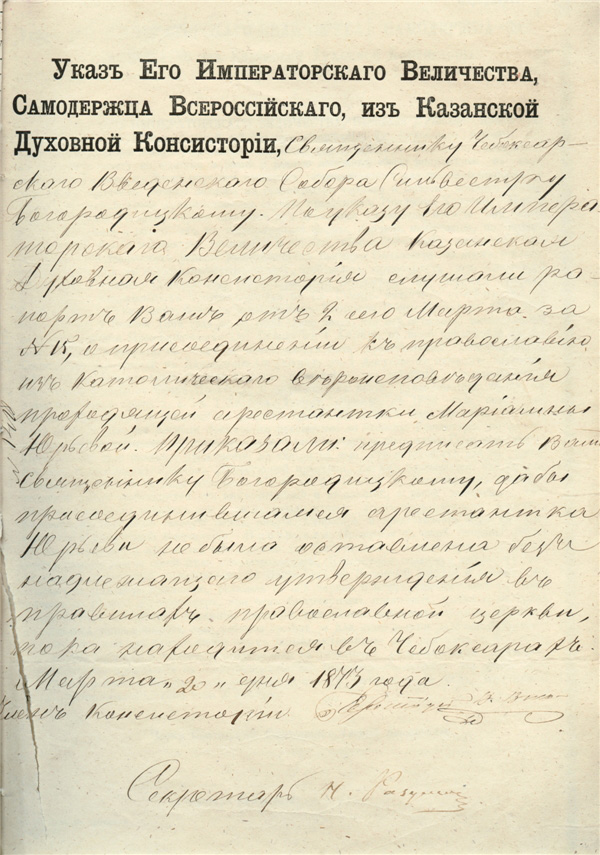 Указъ Его Императорскаго Величества,
Самодержца Всероссійскаго, изъ Казанской
Духовной Консисторіи, Священнику Чебоксар-
скаго Введенскаго Собора Сильвестру
Богородицкому. По указу Его Импера-
торскаго Величества Казанская
Духовная Консисторія слушали ра-
портъ Вашъ отъ 2 сего Марта за
№ 15, о присоединеніи къ православію
изъ Католическаго вѣроисповѣданія
проходящей арестантки Маріанны
Юрьевой. Приказали: предписать Вамъ
священнику Богородицкому, дабы
присоединившаяся арестантка
Юрьева не была оставлена безъ
надлежащаго утвержденія въ
правилахъ православной церкви,
пока находится въ Чебоксарахъ.
Марта "2 " дня 1873 года.
Членъ Консисторіи
Секретарь Н.